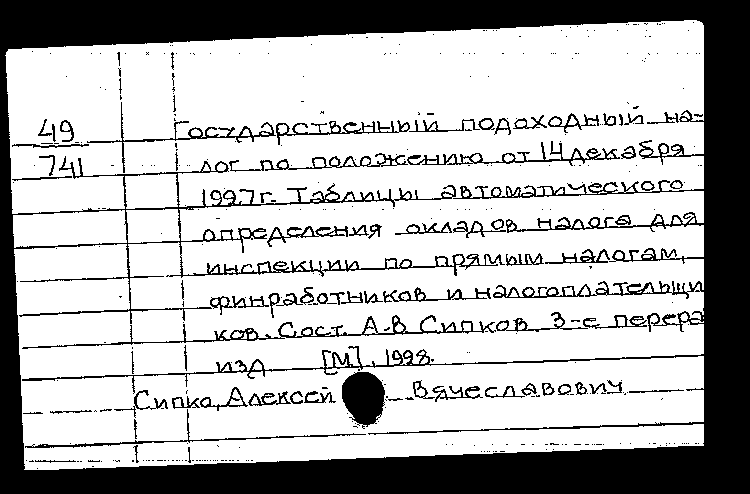 49
741
Государственный подоходный на-
лог по положению от 14 декабря
1927г. Таблицы автоматического
определения окладов налога для
инспекции по прямым налогам,
финработников и налогоплательщи
ков. Сост. А.В Сипков. 3-е перера
изд [М], 1928.
Сипко, Алексей Вячеславович